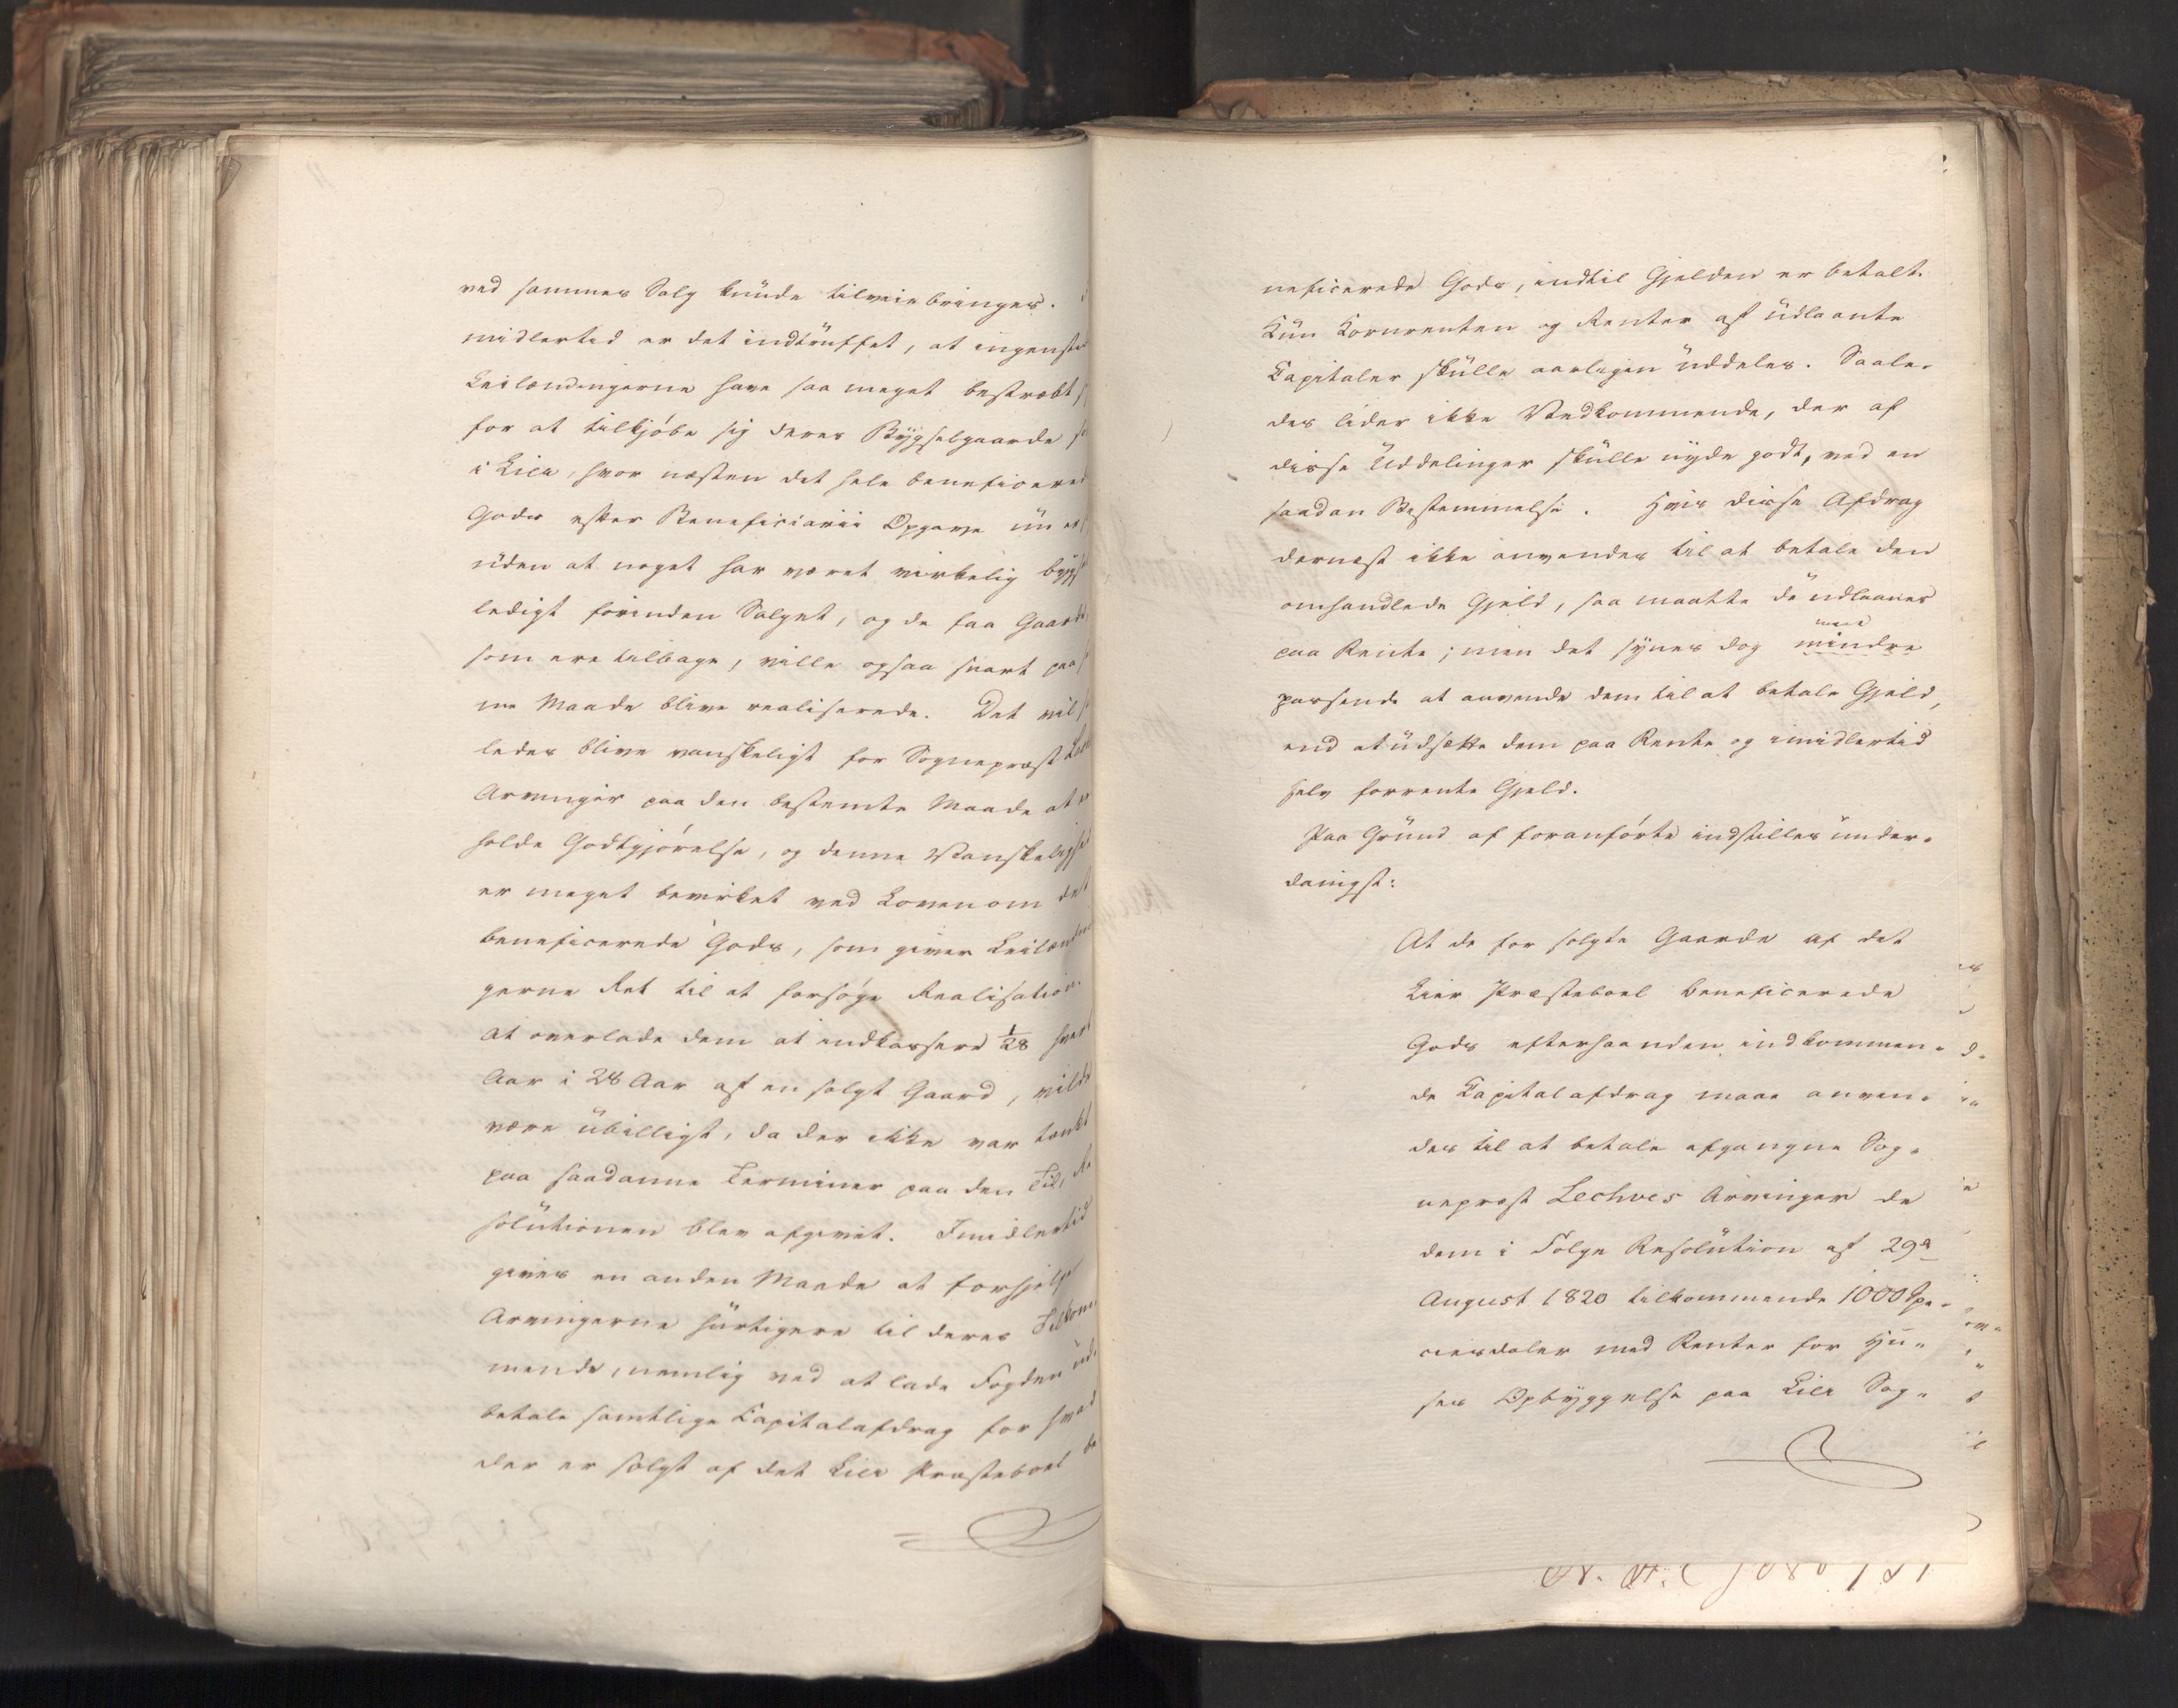 ved sammes Salg kunde tilveiebringes.
midlertid er det indtruffet, at ingensted
Leilændingerne have saa meget bestræbt
for at tilkjøbe sig deres Bygselgaarde
i Lier, hvor næsten det hele beneficered
Gods efter Beneficiarii Opgave nu er
uden at noget har været virkelig bygsel
ledigt forinden Salget, og de faa Gaarde
som ere tilbage, ville ogsaa snart paa
me Maade blive realiserede. Det vil
ledes blive vanskeligt for Sognepræst
Arvinger paa den bestemte Maade at
holde Godtgjørelse, og denne Vanskelighed
er meget bevirket ved Loven om det
beneficerede Gods, som giver Leilændin
gerne Ret til at forsøge Realisation.
At overlade dem at indkassere 1/28 hvert
Aar i 28 Aar af en solgt Gaard, vilde
være ubilligt, da der ikke var tænkt
paa saadanne Terminer paa den Tid, Re
solutionen blev afgivet. Imidlertid
gives en anden Maade at forhjelpe
Arvingerne hurtigere til deres Tilkom
mende, nemlig ved at lade Fogden ud
betale samtlige Capitalafdrag for hvad
der er solgt af det Lier Præsteboel be
neficerede Gods, indtil Gjelden er betalt.
Kun Kornrenten og Renter af udlaante
Capitaler skulle aarligen uddeles. Saale-
des lider ikke Vedkommende, der af
disse Uddelinger skulle nyde godt, ved en
saadan Bestemmelse. Hvis disse Afdrag
dernæst ikke anvendes til at betale den
omhandlede Gjeld, saa maatte de udlaanes
mere
paa Rente; men det synes dog mindre
passende at anvende dem til at betale Gjeld,
end at udsætte dem paa Rente og imidlertid
selv forrente Gjeld.
Paa Grund af foranførte indstilles under-
danigst:
At de for solgte Gaarde af det
Lier Præsteboel beneficerede
Gods efterhaanden indkommen-
de Capitalafdrag maae anven-
des til at betale afgangne Sog-
nepræst Lechves Arvinger de
dem i Følge Resolution af 29d
August 1820 tilkommende 1000 Spe-
ciesdaler med Renter for Hu-
ses Opbyggelse paa Lier Sog-